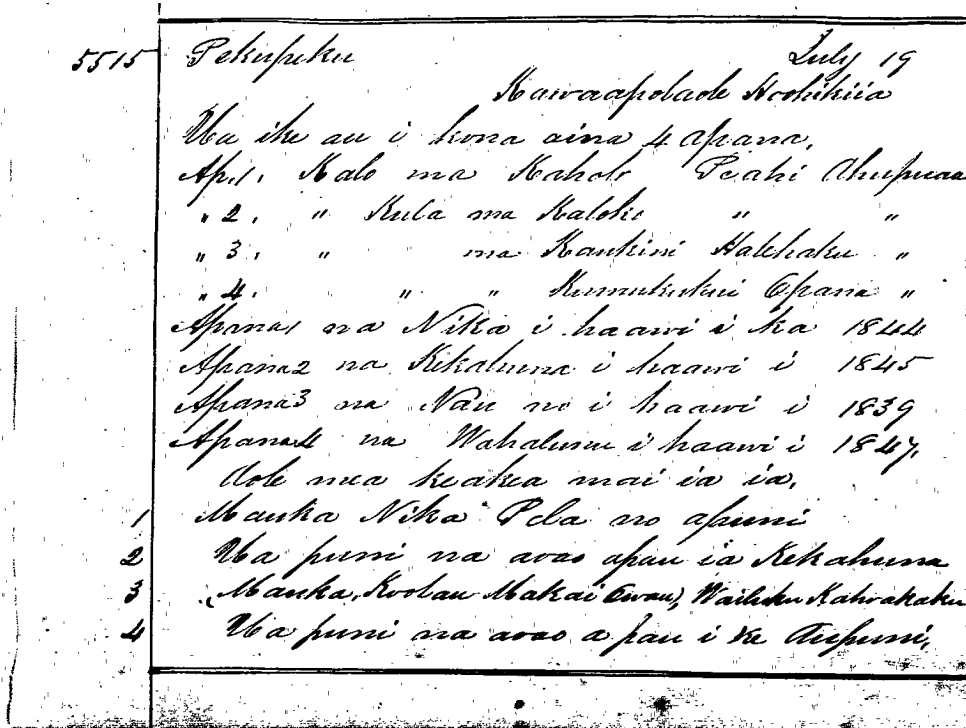 5515 Pekupeku July 19
Kawaapolaole Hoohikiia
Ua ike au i kona aina 4 apana,
Ap. 1. Kalo ma Kahole Peahi Ahupuaa
" 2. " Kula ma Kaloko " "
" 3. " ma Kaukini Halehaku "
" 4. " " Kumukukui Opana "
Apana 1 na Nika i haawi i ka 1844
Apana 2 na Kekahuna i haawi i 1845
Apana 3 na Nau no i haawi i 1839
Apana 4 na Wahalumu i haawi i 1847.
Aole mea keakea mai ia ia.
1 Mauka Nika Pela no apuni
2 Ua puni na aoao apau ia Kekahuna
3 (Mauka, Koolau Makai Owau), Wailuku Kahookaku
4 Ua puni na aoao a pau i ke Aupuni.